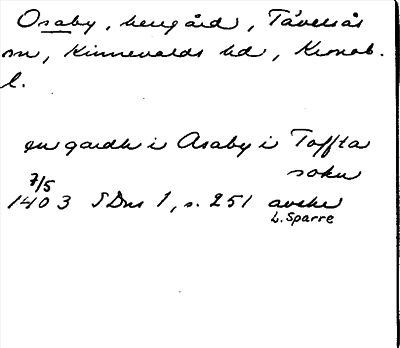 Osaby, herrgård, Tävelsås
sn, Kinnevalds hd, Kronob.
l.
en gardh i Asaby i Toffta
sokn
7/5
1403 SDns 1, s. 251 avskr
L. Sparre